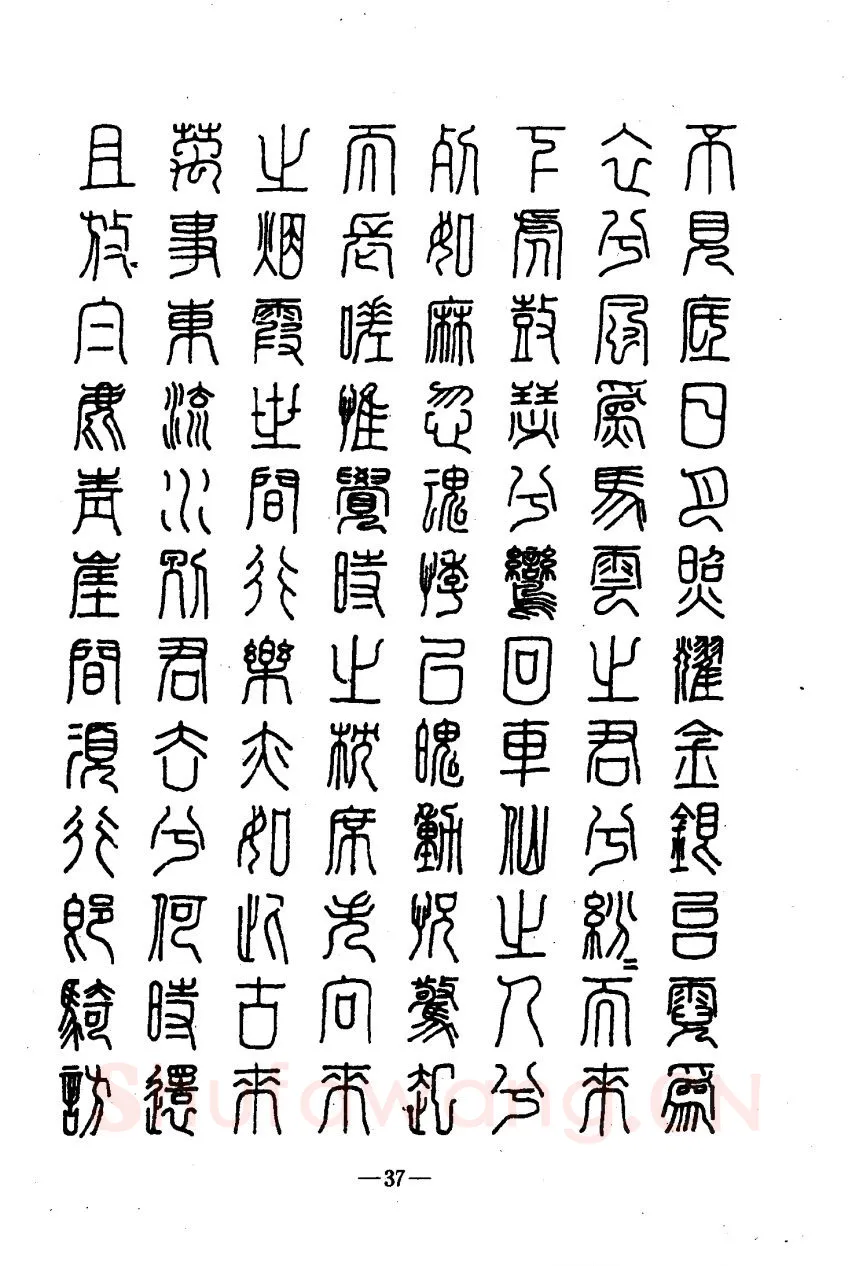 不見底日月照耀金銀台霓爲
衣兮風爲馬雲之君兮紛〻而來
下虎鼓瑟兮鸞回車仙之人兮
列如麻忽魂悸已魄動怳驚起
而長嗟惟覺時之枕席失向來
之烟霞世間行樂亦如此古來
萬事東流水別君去兮何時還
且放白鹿青崖間須行即騎訪
—37—
Shufawang.CN